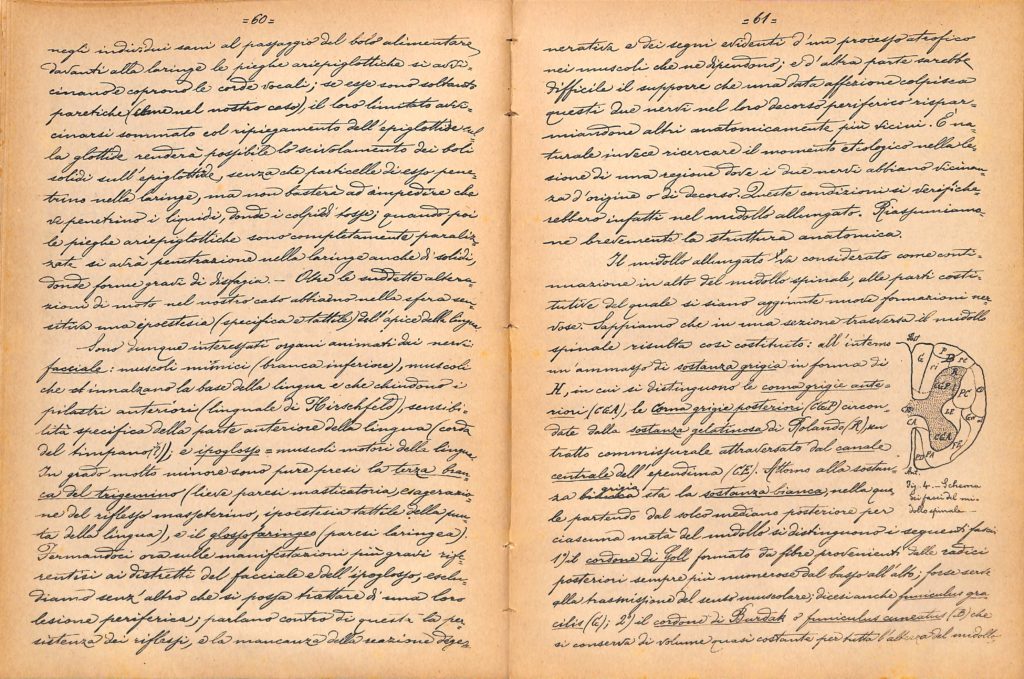 =60=
negli individui sani al passaggio del bolo alimentare
davanti alla laringe le pieghe ariepiglottiche si avvi-
cinando e coprono le corde vocali; se esse sono soltanto
paretiche (come nel nostro caso), il loro limitato avvi-
cinarsi sommato col ripiegamento dell'epiglottide sul
la glottide renderà possibile lo scivolamento dei boli
solidi sull'epiglottide, senza che particelle di esso pene-
trino nella laringe, ma non basterà ad impedire che
vi penetrino i liquidi, donde i colpi di tosse; quando poi
le pieghe ariepiglottiche sono completamente paraliz-
zate si avrà penetrazione nella laringe anche di solidi,
donde forme gravi di disfagia. — Oltre le suddette altera-
zioni di moto nel nostro caso abbiamo nella sfera sen-
sitiva una ipoestesia (specifica e tattile) dell'apice della lingua.
Sono dunque interessati organi animati dai nervi
facciale: muscoli mimici (branca inferiore), muscoli
che innalzano la base della lingua e che chiudono i
pilastri anteriori (linguale di Hirschfeld), sensibi-
lità specifica della parte anteriore della lingua (corda
del timpano (?)); e ipoglosso = muscoli motori della lingua.
In grado molto minore sono pure presi la terza bran-
ca del trigemino (lieve paresi masticatoria, esagerazio-
ne del riflesso masseterino, ipoestesia tattile della pun-
ta della lingua), e il glossofaringeo (paresi laringea).
Fermandoci ora sulle manifestazioni più gravi rife-
rentisi ai distretti del facciale e dell'ipoglosso, esclu-
diamo senz'altro che si possa trattare d'una loro
lesione periferica; parlano contro di questa la per-
sistenza dei riflessi, e la mancanza della reazione dege-
=61=
nerativa e dei segni evidenti d'un processo atrofico
nei muscoli che ne dipendono; e d'altra parte sarebbe
difficile il supporre che una data affezione colpisca
questi due nervi nel loro decorso periferico rispar-
miandone altri anatomicamente più vicini. È na-
turale invece ricercare il momento etiologico nella le-
sione di una regione dove i due nervi abbiano vicinan-
za d'origine o di decorso. Queste condizioni si verifiche-
rebbero infatti nel midollo allungato. Riassumiamo-
ne brevemente la struttura anatomica.
Il midollo allungato va considerato come conti-
nuazione in alto del midollo spinale, alle parti costi-
tutive del quale si siano aggiunte nuove formazioni ner-
vose. Sappiamo che in una sezione trasversa il midollo
spinale risulta così costituito: all'interno
un'ammasso di sostanza grigia in forma di
H, in cui si distinguono le corna grigie ante-
riori (CGA), le Corna grigie posteriori (CGP) circon-
date dalla sostanza gelatinosa di Rolando (R), un
tratto commissurale attraversato dal canale
centrale dell'ependima (CE). Attorno alla sostan-
za grigia sta la sostanza bianca, nella qua
le partendo dal solco mediano posteriore per
ciascuna metà del midollo si distinguono i seguenti fasci:
1º) il cordone di Goll formato da fibre provenienti dalle radici
posteriori sempre più numerose dal basso all'alto; forse serve
alla trasmissione del senso muscolare; dicesi anche funiculus gra-
cilis (G); 2º) il cordone di Burdak o funiculus cuneatus (B) che
si conserva di volume quasi costante per tutta l'altezza del midollo
Post.
G
B
R
CGP
PC
CE
CA
CGA
PD
PA
Ant.
Fig. 4. — Schema
dei fasci del mi-
dollo spinale —